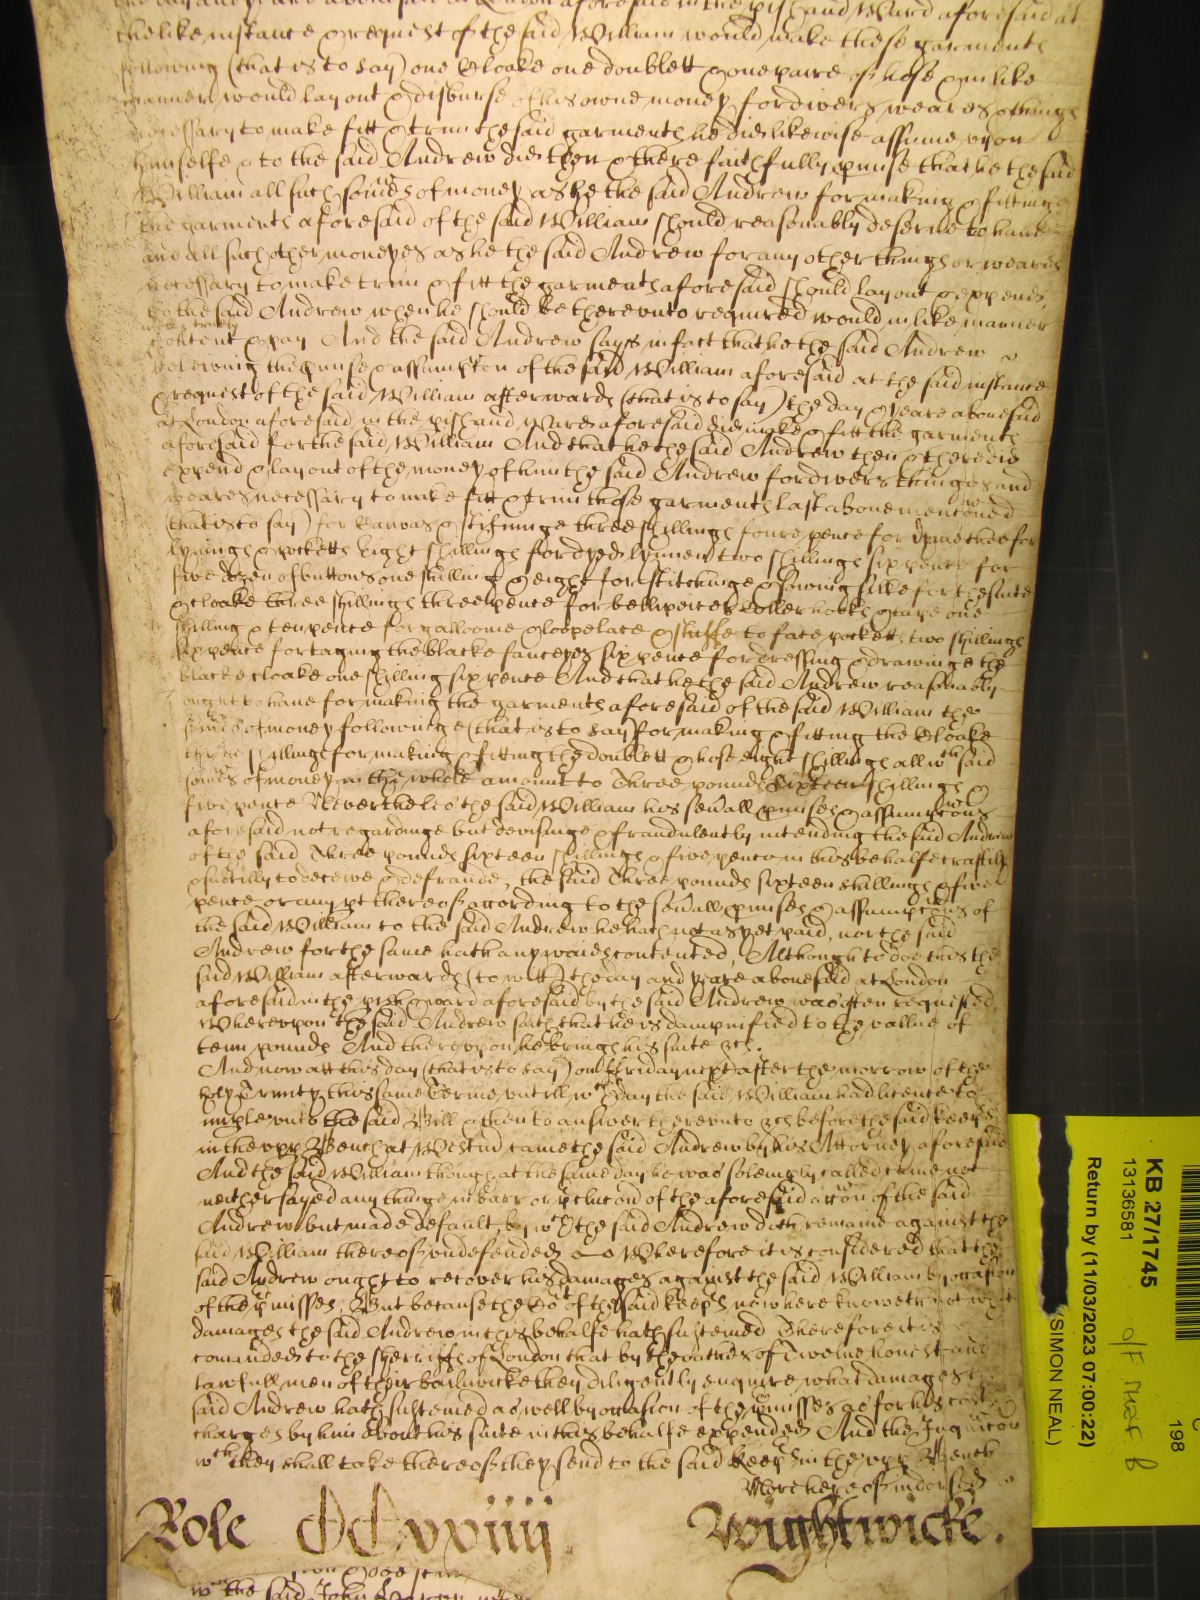 the day and yeare abovesaid at London aforesaid in the pish and Ward aforesaid at
the like instance & request of the said William would make these garmentes
following (that is to say) one Cloake one doublett & one paire of hose & in like
manner would lay out & disburse of his owne money for divers weares & thinges
necessary to make fitt & trim the said garmentes he did likewise assume upon
himselfe & to the said Andrew did then & there faithfully pmise that he the said
William all such somes of money as he the said Andrew for making & fittinge
the garmentes aforesaid of the said William should reasonably deserve to have
and all such other moneyes as he the said Andrew for any other thinges or weares
necessary to make trim & fitt the garmentes aforesaid should lay out & expend
to the said Andrew when he should be thereunto required would in like manner
well & truely
content & pay And the said Andrew sayes in fact that he the said Andrew
beleiving the pmise & assumption of the said William aforesaid at the said instance
& request of the said William afterwardes (that is to say) the day & yeare abovesaid
at London aforesaid in the pish and Ward aforesaid did make & fitt the garmentes
aforesaid for the said William And that he the said Andrew then & there did
expend & lay out of the money of him the said Andrew for divers thinges and
weares necessary to make fitt & trim those garmentes last abovementioned
(that is to say) for Canvas & stifninge three shillinges foure pence for
lyninges & pocketts Eight shillinges for dyed lynnen two shillinges six pence for
five dozen of buttons one shilling & eight for stitchinge & sowing silke for the suite
& cloake three shillinges three pence for bellipeices Coller hookes & tape one
shilling & ten pence for galloome & loopelace & stuffe to face pocketts two shillinges
six pence for taging the blacke fanceyes six pence for dressing & drawinge the
blacke cloake one shilling six pence And that he the said Andrew reasonably
ought to have for making the garmentes aforesaid of the said William the
somes of money followinge (that is to say) for making & fitting the Cloake
three shillinges for making & fitting the doublett & hose eight shillinges all wch said
somes of money in the whole amount to Three poundes Sixteen shillinges &
five pence Neverthelesse the said William his sevall pmises & assumptions
aforesaid not regardinge but devisinge & fraudulently intending the said Andrew
of the said Three poundes sixteen shillinges & five pence in this behalfe craftily
& subtilly to deceive & defraude, the said Three poundes sixteen shillinges & five
pence or any pt thereof according to the sevall pmises & assumptions of
the said William to the said Andrew he hath not as yet paid, nor the said
Andrew for the same hath any waies contented, Although to doe this the
said William afterwardes (to witt) the day and yeare abovesaid at London
aforesaid in the pish & ward aforesaid by the said Andrew was often requested.
Whereupon the said Andrew saith that he is dampnified to the vallue of
tenn poundes And thereupon he bringes his suite &c.
And now att this day (that is to say) on Friday next after the morrow of the
holy Trinity this same Terme untill wch day the said William had licence to
imple unto the said Bill & then to answer thereunto &c before the said keeps
in the upp Bench at Westm came the said Andrew by his Attorney aforesaid
And the said William though at the same day he was solemply called came not
neither sayed any thinge in barr or pclucon of the aforesaid accon of the said
Andrew but made default, by wch the said Andrew doth remaine against the
said William thereof undefended Wherefore it is considered that the
said Andrew ought to recover his damages against the said William by occasion
of the pmisses, But because the Cot of the said keeps now here knoweth not what
damages the said Andrew in this behalfe hath susteined Therefore it is
comanded to the sherriffes of London that by the oathes of Twelve honest and
lawfull men of their bailiwicke they diligently enquire what damages the
said Andrew hath susteined as well by occasion of the pmisses as for his costes
charges by him about his suite in this behalfe expended And the Inquicon
wch they shall take thereof they send to the said keeps in the upp Bench
More hereof indorsed
Role CCxxiiij Wightwicke.
wch the said John
KB 27/1745
13136581
Return by (11/03/2023 07:00:22)
(SIMON NEAL)
198